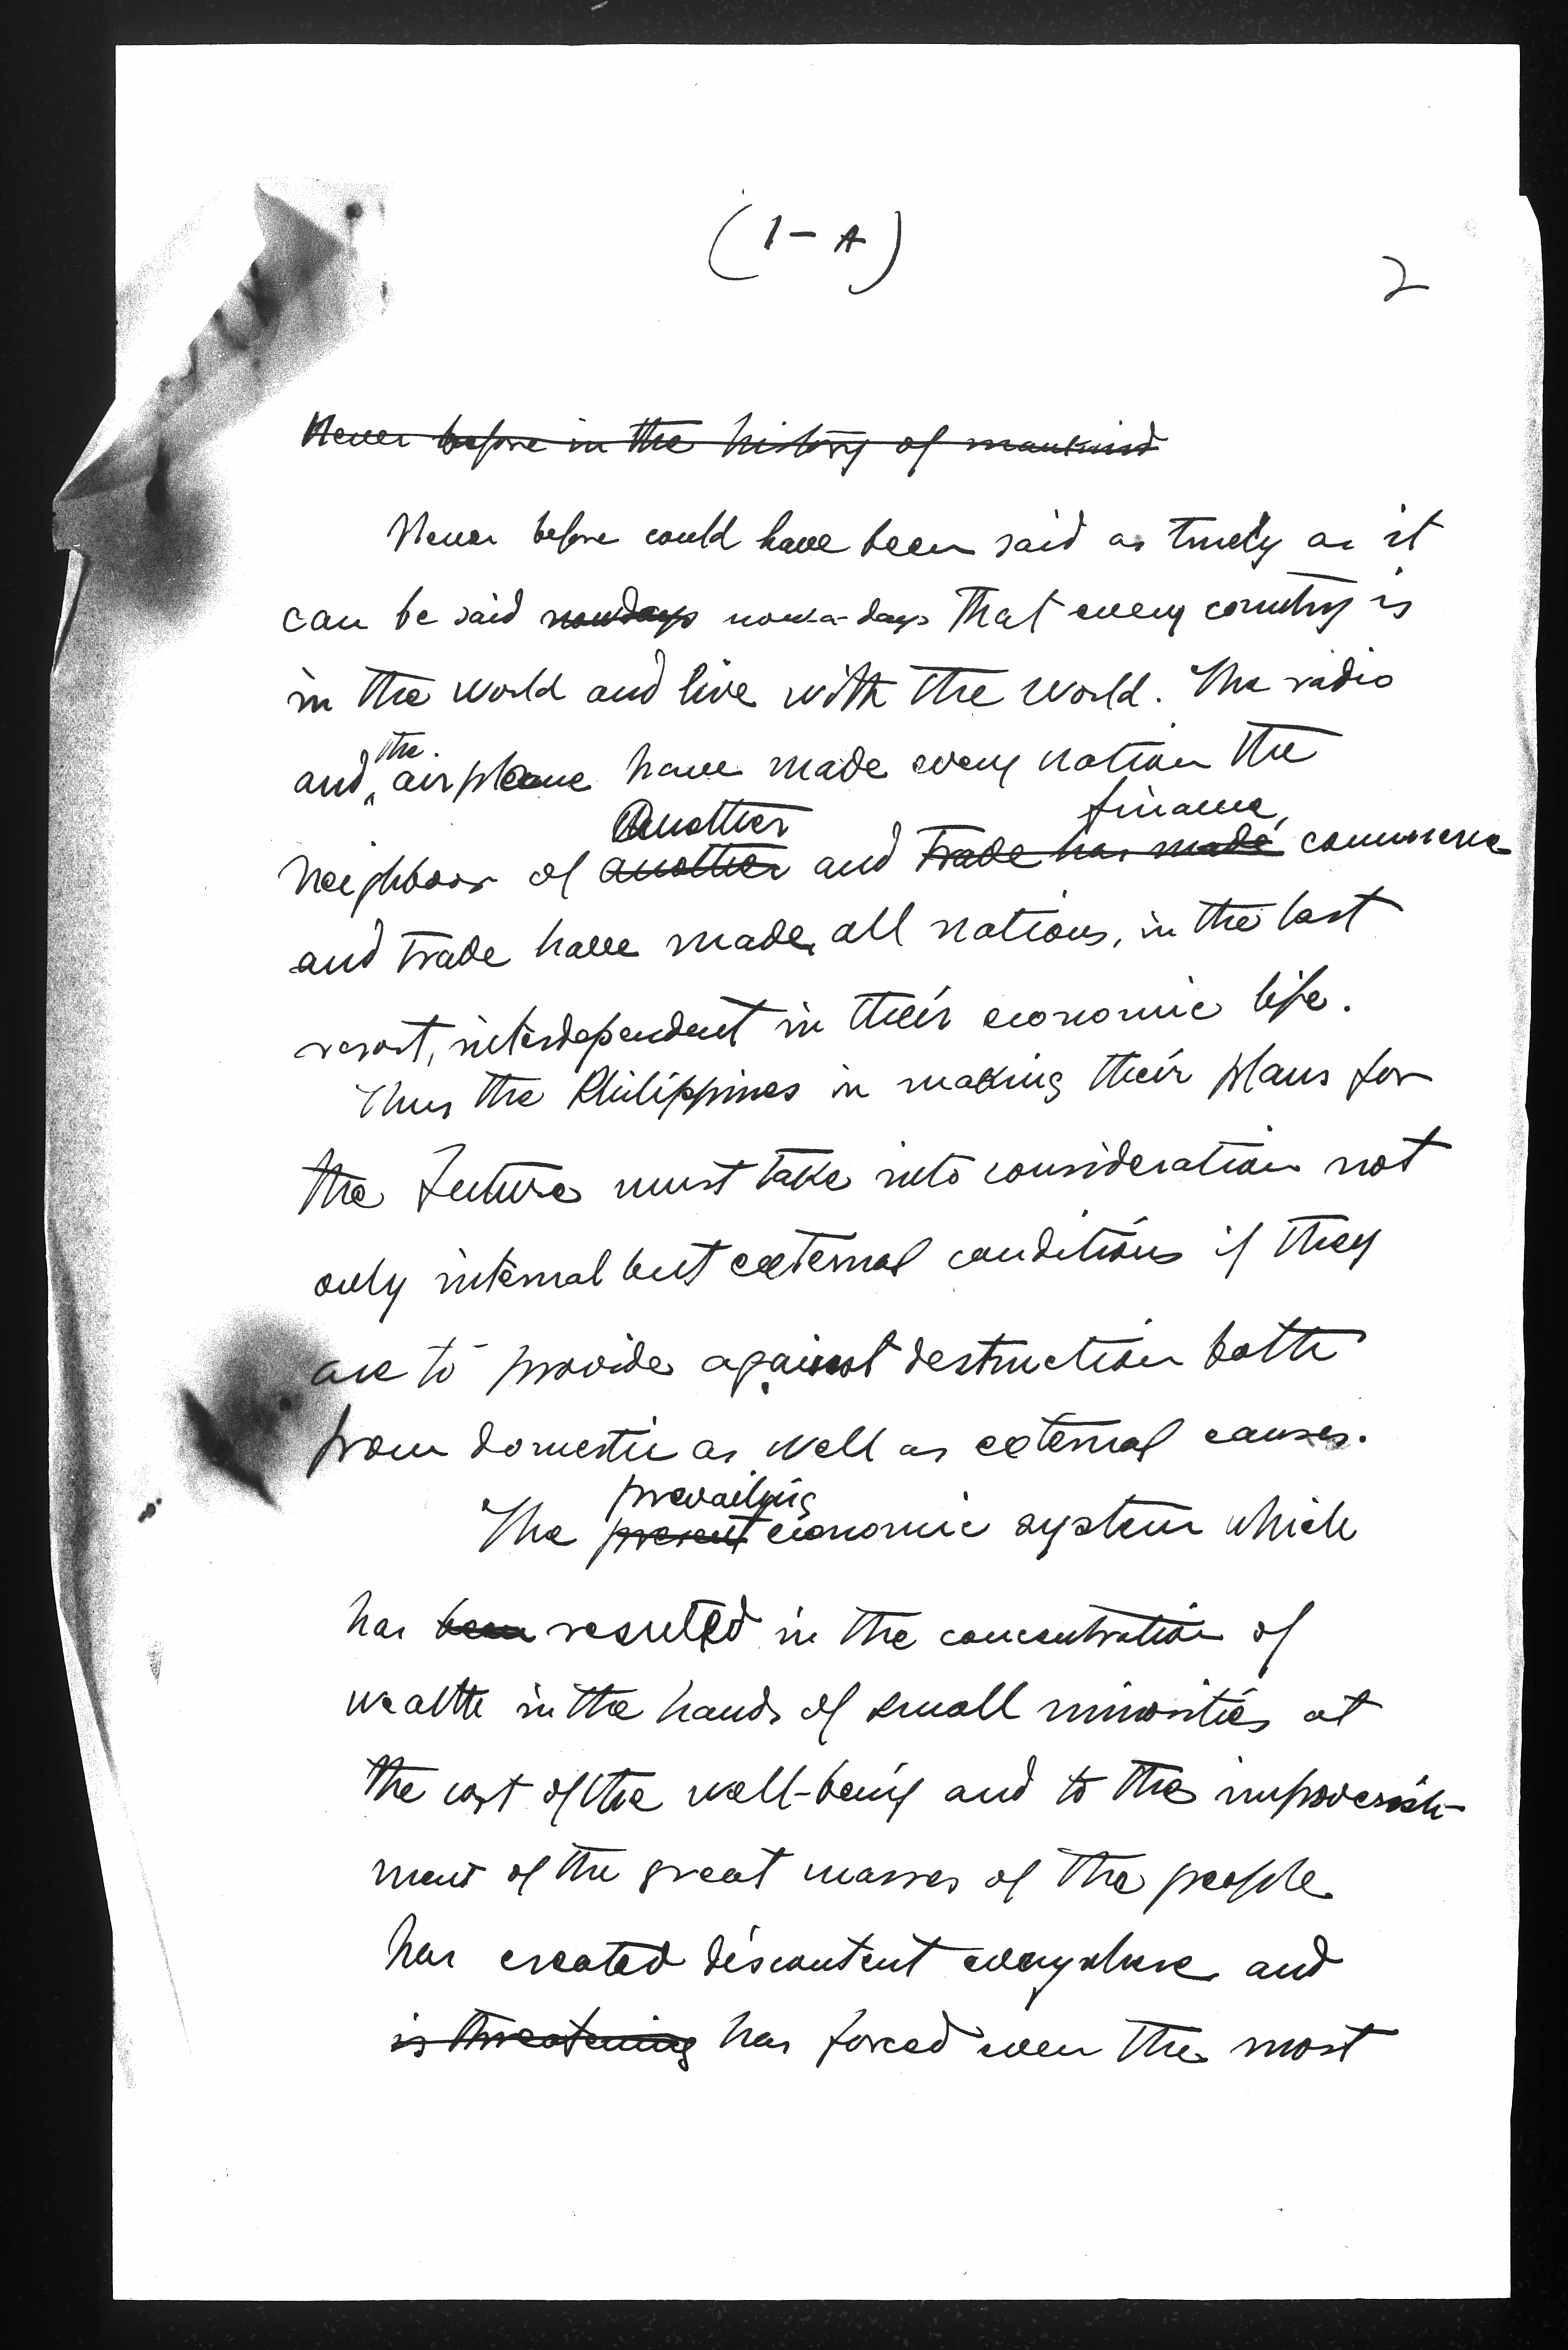 (1-A)
2
Never before in the history of mankind
Never before could have been said as truely as it
can be said nowdays now-a-days that every country is
in the world and live with the world. The radio
the
and airplane have made every nation the
Another finance,
neighboor of another and trade has made commerce
and trade have made all nations, in the last
resort, interdependent in their economic life.
Thus the Philippines in making their plans for
the future must take into consideration not
only internal but external conditions if they
are to provide against destruction both
from domestic as well as external causes.
prevailing
The present economic system which
has been resulted in the concentration of
wealth in the hands of small minorities at
the cost of the well-being and to the impoverish-
ment of the great masses of the people
has created discontent everywhere and
is threatening has forced even the most